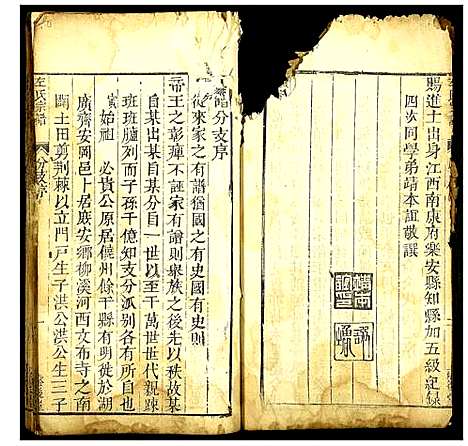 賜進士出身江西南康府樂安縣知縣加五級紀錄
四次同學弟靖本誼敬譔
譜分支序
從來家之有譜猶國之有史國有史則
帝王之彰癉不誣家有譜則衆族之後先以秩故某
自某出某自某分自一世以至千萬世世代親踈
班班臚列而子孫千億知支分派別各有自來矣
始祖 必貴公原居饒州餘干縣有明徙於湖
廣齊安岡邑卜居廐安鄉柳溪河西文布寺之南
闢土田剪荆棘以立門戸生子洪公洪公生三子
左氏宗譜
分支序